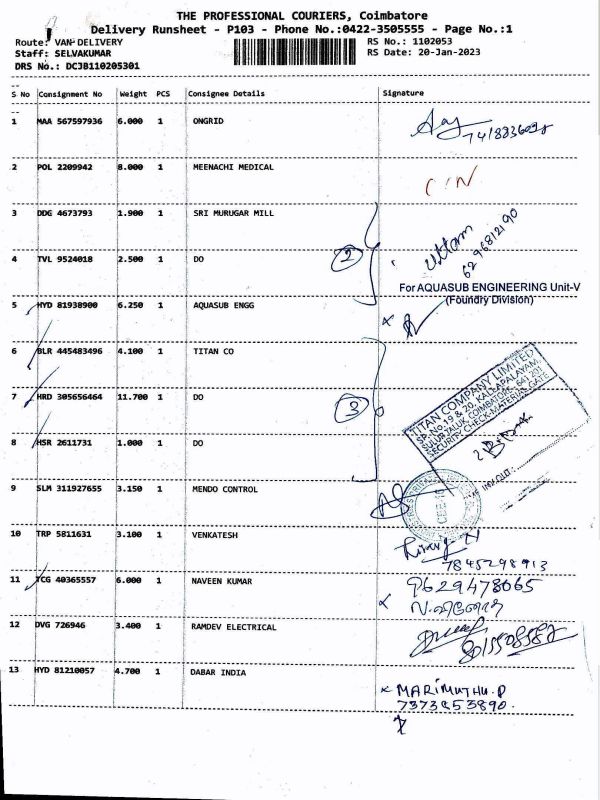 THE PROFESSIONAL COURIERS, Coimbatore
Delivery Runsheet - P103 - Phone No.:0422-3505555 - Page No.:1
Route: VAN DELIVERY RS No.: 1102053
Staff: SELVAKUMAR RS Date: 20-Jan-2023
DRS No.: DCJB110205301
S No Consignment No Weight PCS Consignee Details Signature
1 MAA 567597936 6.000 1 ONGRID
2 POL 2209942 8.000 1 MEENACHI MEDICAL
3 DDG 4673793 1.900 1 SRI MURUGAR MILL
Uttam
62 96812190
4 TVL 9524018 2.500 1 DO
2
For AQUASUB ENGINEERING Unit-V
(Foundry Division)
5 HYD 81938900 6.250 1 AQUASUB ENGG
6 BLR 445483496 4.100 1 TITAN CO
7 HRD 305656464 11.700 1 DO
3
TITAN COMPANY LIMITED
SP. No.19 & 20, KALLAPALAYAM,
SULUR TALUK, COIMBATORE-641 201
SECURITY CHECK-MATERIAL GATE
8 HSR 2611731 1.000 1 DO
9 SLM 311927655 3.150 1 MENDO CONTROL
10 TRP 5811631 3.100 1 VENKATESH
7845298913
11 TCG 40365557 6.000 1 NAVEEN KUMAR
9629478065
12 DVG 726946 3.400 1 RAMDEV ELECTRICAL
13 HYD 81210057 4.700 1 DABAR INDIA
MARIMUTHU.P
7373853890.